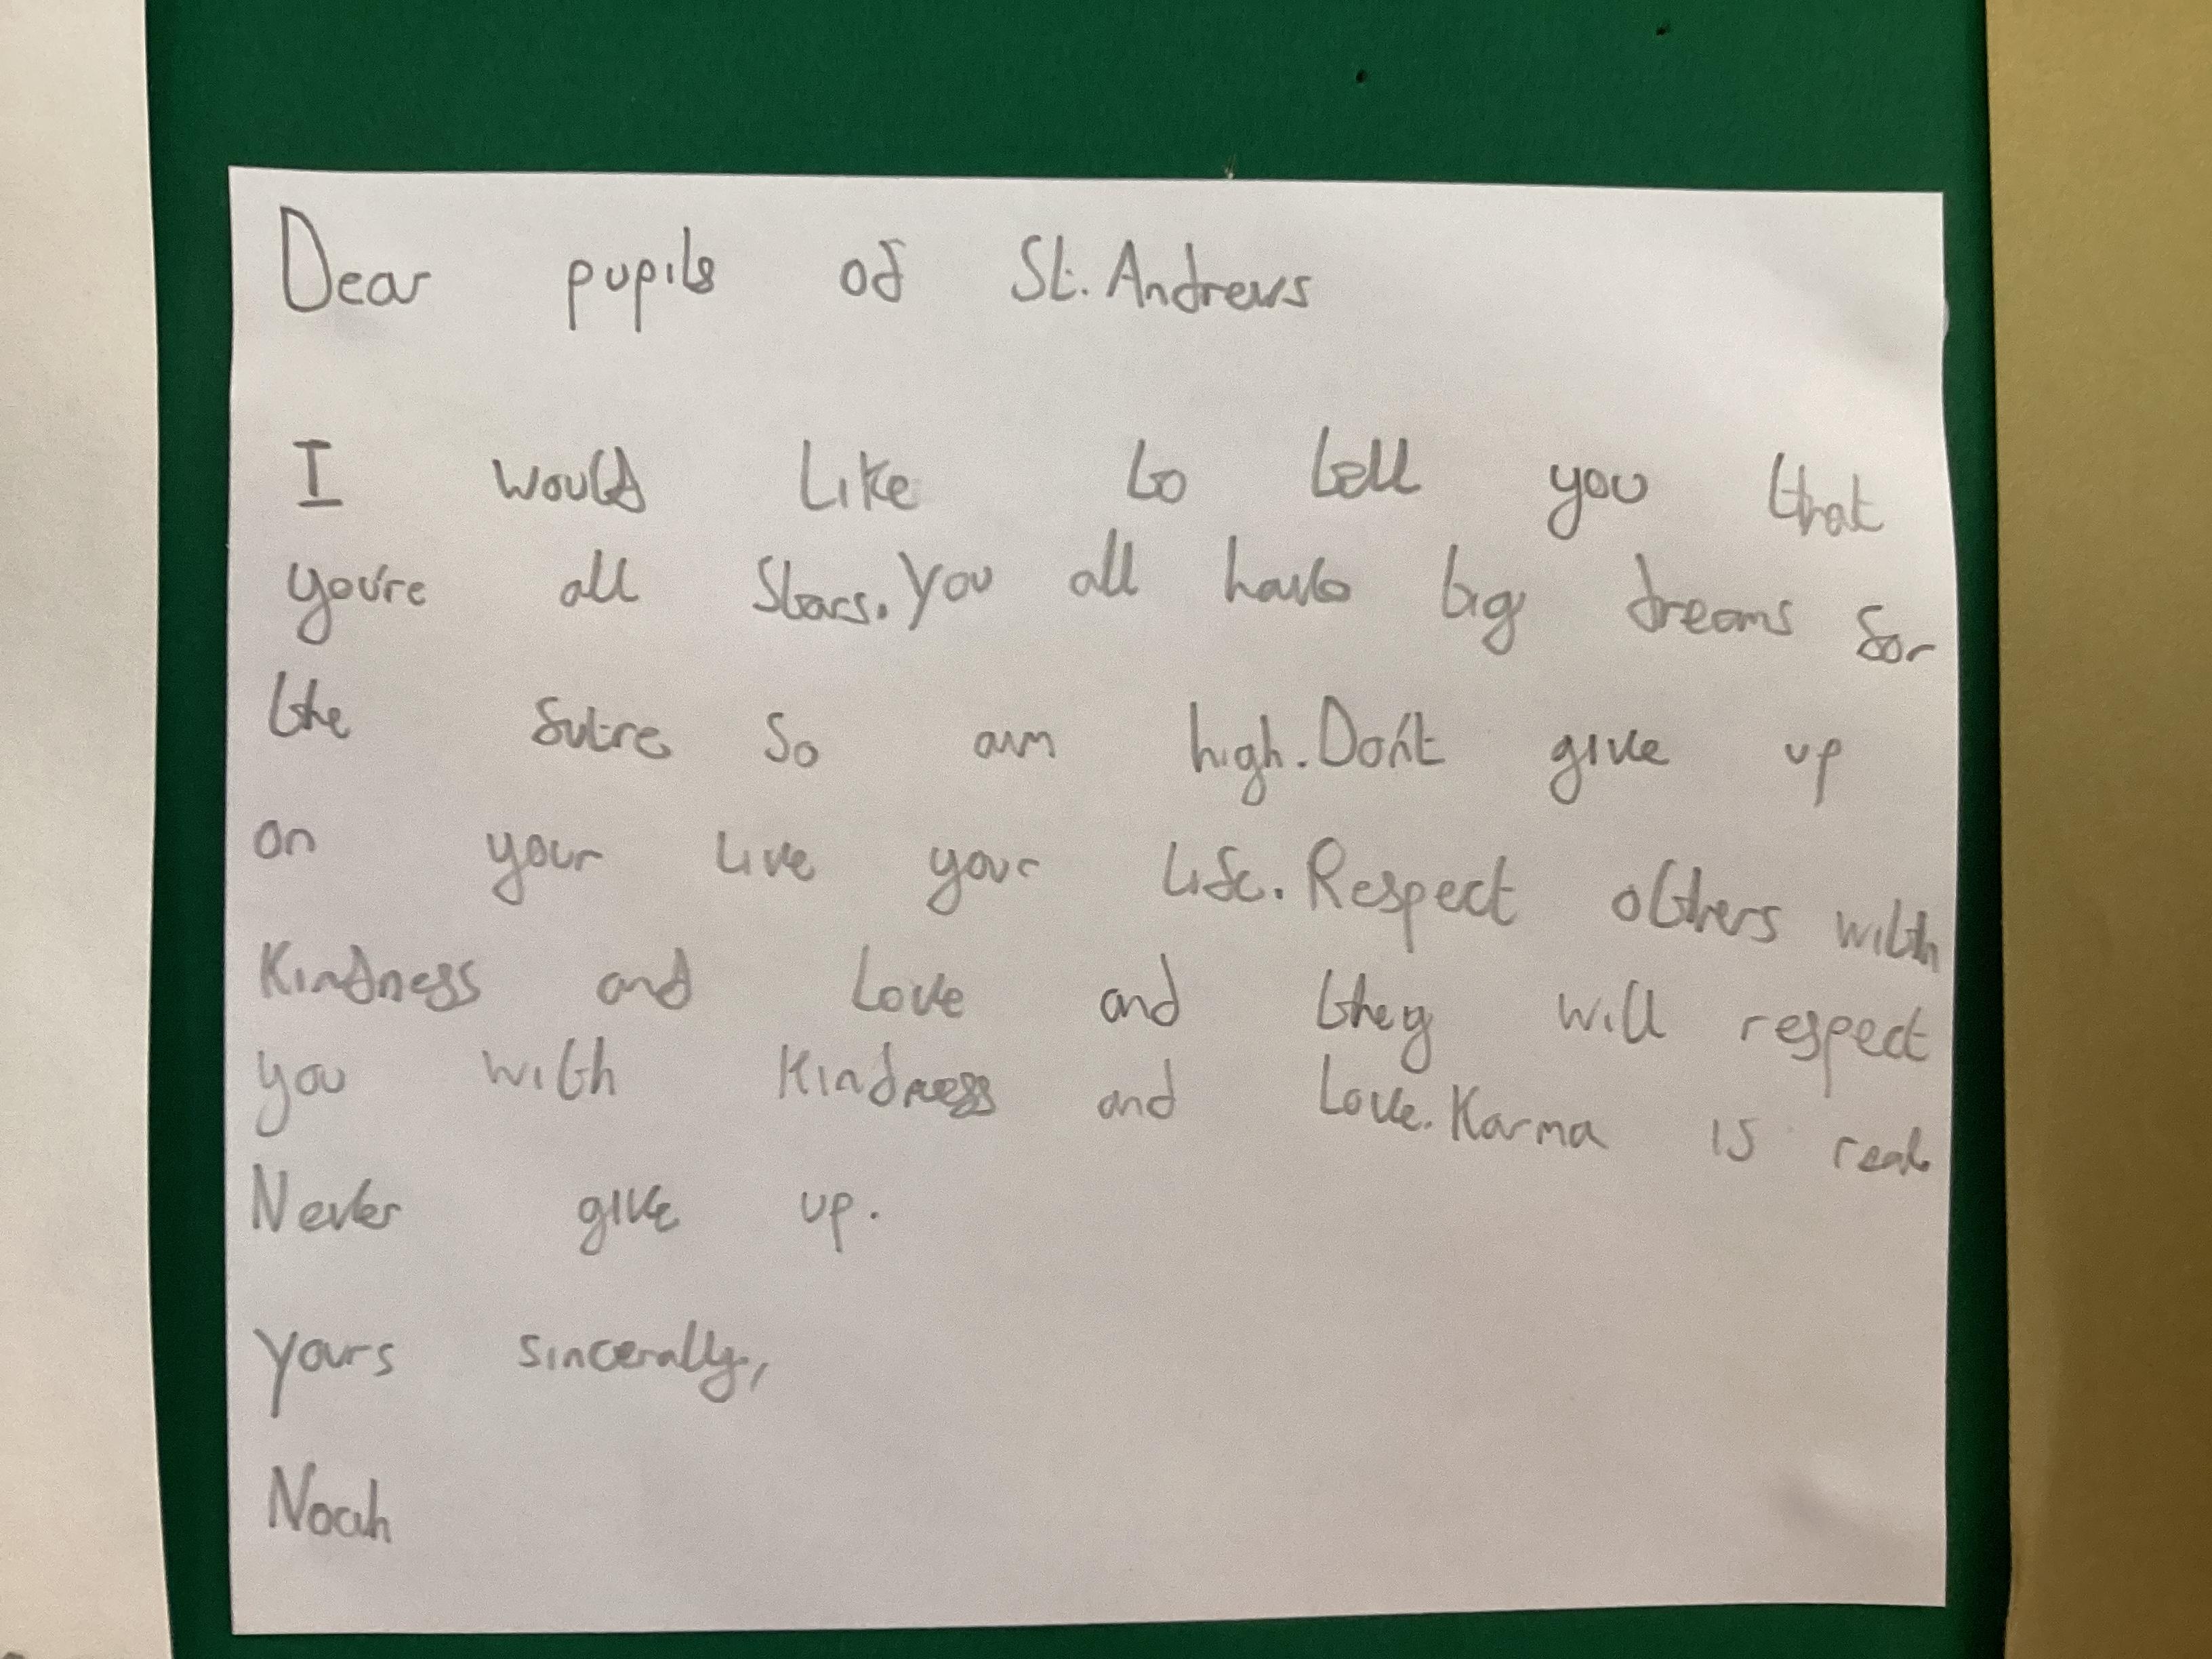 Dear pupils of St. Andrews
I would like to tell you that
you're all stars. You all have big dreams for
the futre so aim high. Don't give up
on your live your life. Respect others with
Kindness and Love and they will respect
you with Kindness and Love. Karma is real
Never give up.
Yours sincerally,
Noah